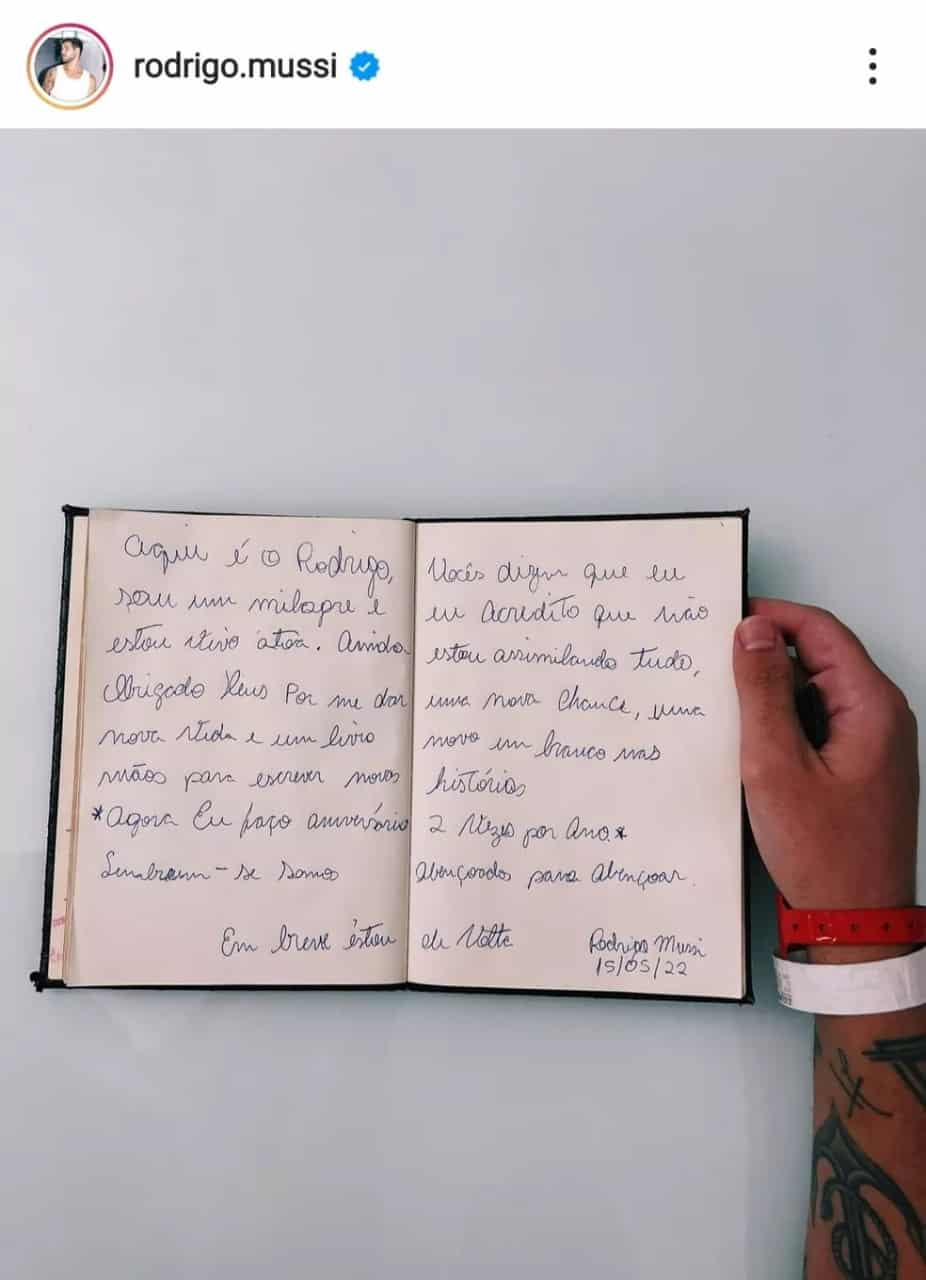 rodrigo.mussi
Aqui é o Rodrigo, Vocês dizem que eu
sou um milagre e eu acredito que não
estou vivo atoa. Ainda estou assimilando tudo,
Obrigado Deus Por me dar uma nova Chance, uma
nova Vida e um livro novo em branco nas
mãos para escrever novas histórias
*Agora Eu faço aniversário 2 Vezes por Ano.*
Lembrem-se somos Abençoados para Abençoar.
Em breve estou de Volta
Rodrigo Mussi
15/05/22